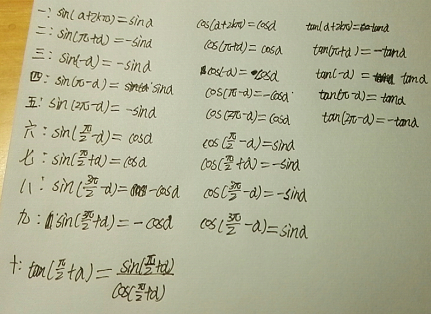 一: sin(α+2kπ)=sinα cos(α+2kπ)=cosα tan(α+2kπ)=tanα
二: sin(π+α)=-sinα cos(π+α)=cosα tan(π+α)=-tanα
三: sin(-α)=-sinα cos(-α)=cosα tan(-α)=tanα
四: sin(π-α)=sinα cos(π-α)=-cosα tan(π-α)=tanα
五: sin(2π-α)=-sinα cos(2π-α)=cosα tan(2π-α)=-tanα
六: sin(π/2-α)=cosα cos(π/2-α)=sinα
七: sin(π/2+α)=cosα cos(π/2+α)=-sinα
八: sin(3π/2-α)=-cosα cos(3π/2-α)=-sinα
九: sin(3π/2+α)=-cosα cos(3π/2-α)=sinα
十: tan(π/2+α)=sin(π/2+α)/cos(π/2+α)